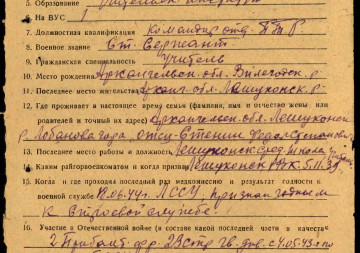 5. Образование
6. На ВУС 1
7. Должностная квалификация Командир отд. ПТР
8. Военное звание Ст. Сержант
9. Гражданская специальность Учитель
10. Место рождения Архангельск. обл. Вилегодск. р.
11. Последнее место жительства Арханг. обл. Лешуконск. р.
12. Где проживает в настоящее время семья (фамилия, имя и отчество жены или
родителей и точный их адрес) Архангельск. обл. Лешуконск
р. отцу
13. Последнее место работы и должность Лешуконск. сред. школа
14. Каким райгорвоенкоматом и когда призван Лешуконск. РВК 5.11.39
15. Когда и где проходил последний раз медкомиссию и результат годности к
военной службе 18.06.44г. ЛССР признан годным
к строевой службе.
16. Участие в Отечественной войне (в составе какой последней части в качестве
2 Прибалт. фр. 23 гв. див. с 4.05.43 г. по